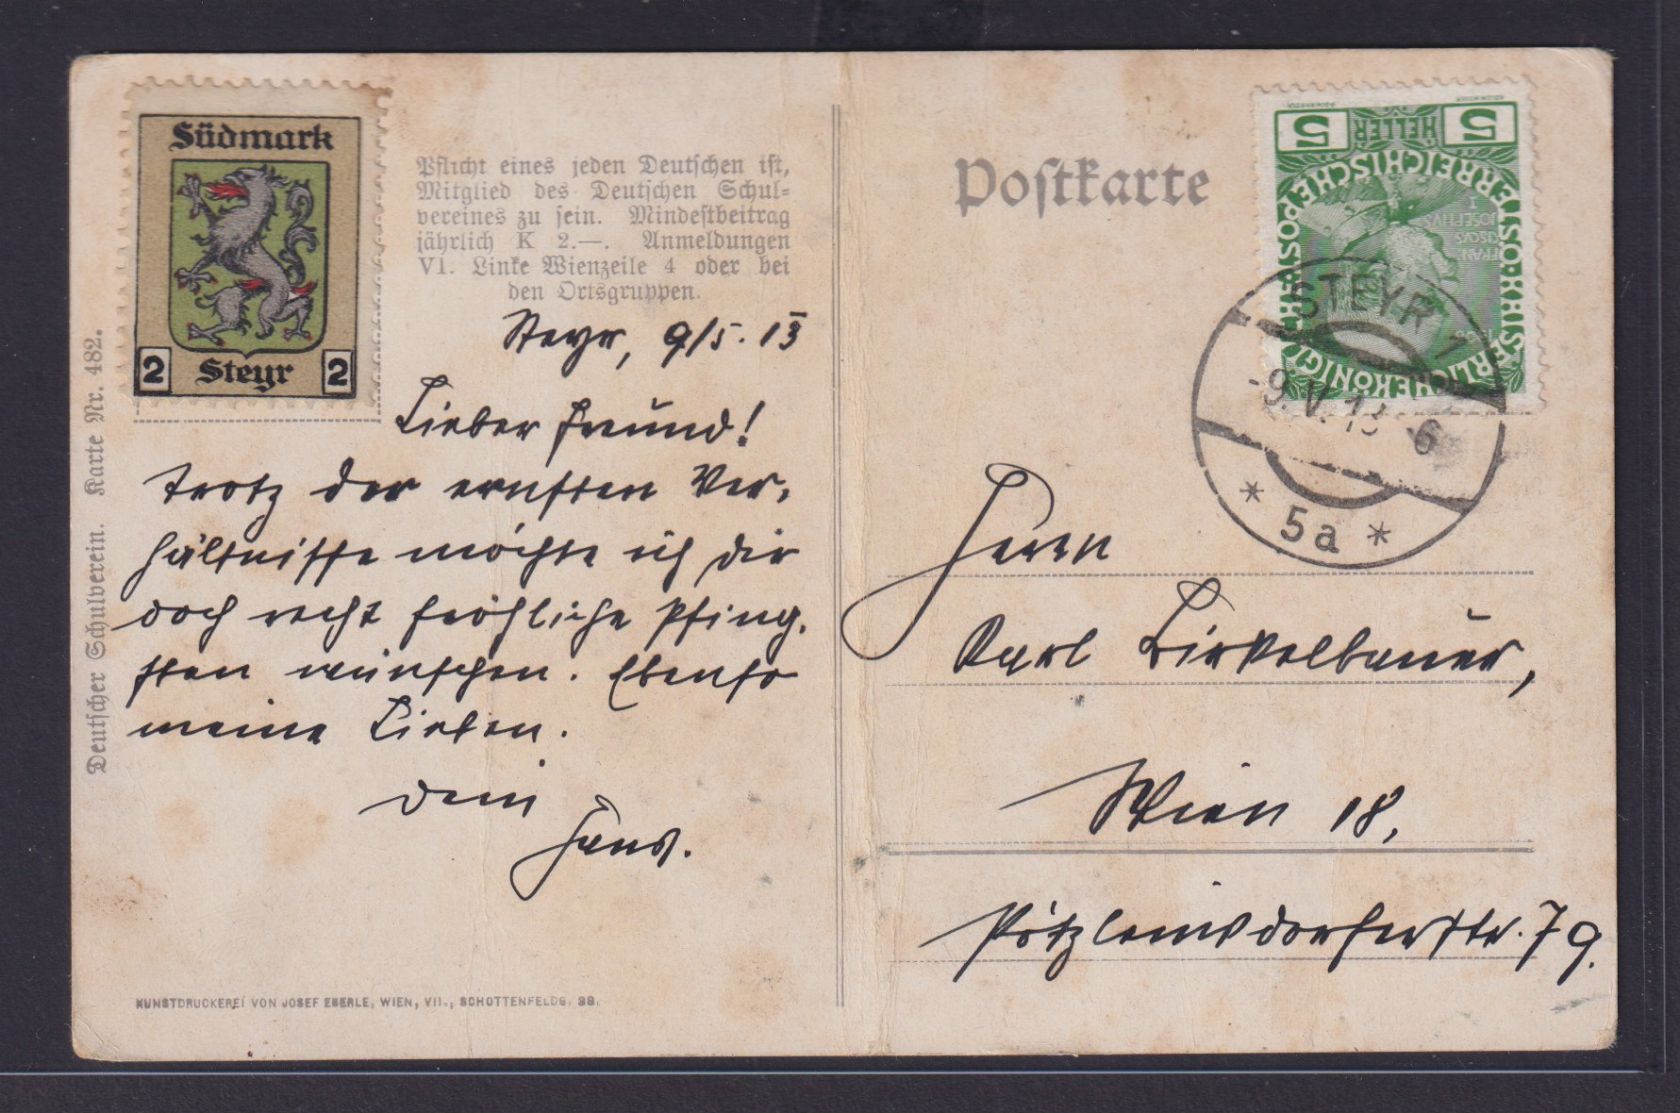 Südmark
2 Steyr 2
Pflicht eines jeden Deutschen ist,
Mitglied des Deutschen Schul-
vereines zu sein. Mindestbeitrag
jährlich K 2.—. Anmeldungen
VI. Linke Wienzeile 4 oder bei
den Ortsgruppen.
Steyr, 9/5. 13
Lieber Freund!
Trotz der ernsten Ver-
hältnisse möchte ich dir
doch recht fröhliche Pfing-
sten wünschen. Ebenso
meine Lieben.
Dein
Hans.
Deutscher Schulverein. Karte Nr. 482.
KUNSTDRUCKEREI VON JOSEF EBERLE, WIEN, VII., SCHOTTENFELDG. 38.
Postkarte
5 HELLER 5
KAISERLICHE KÖNIGLICHE ÖSTERREICHISCHE POST
FRANCISCVS
IOSEPHVS
I
1908
STEYR 1
-9.V.13 -6
* 5a *
Herrn
Karl Birkelbauer,
Wien 18,
Pötzleinsdorferstr. 79.